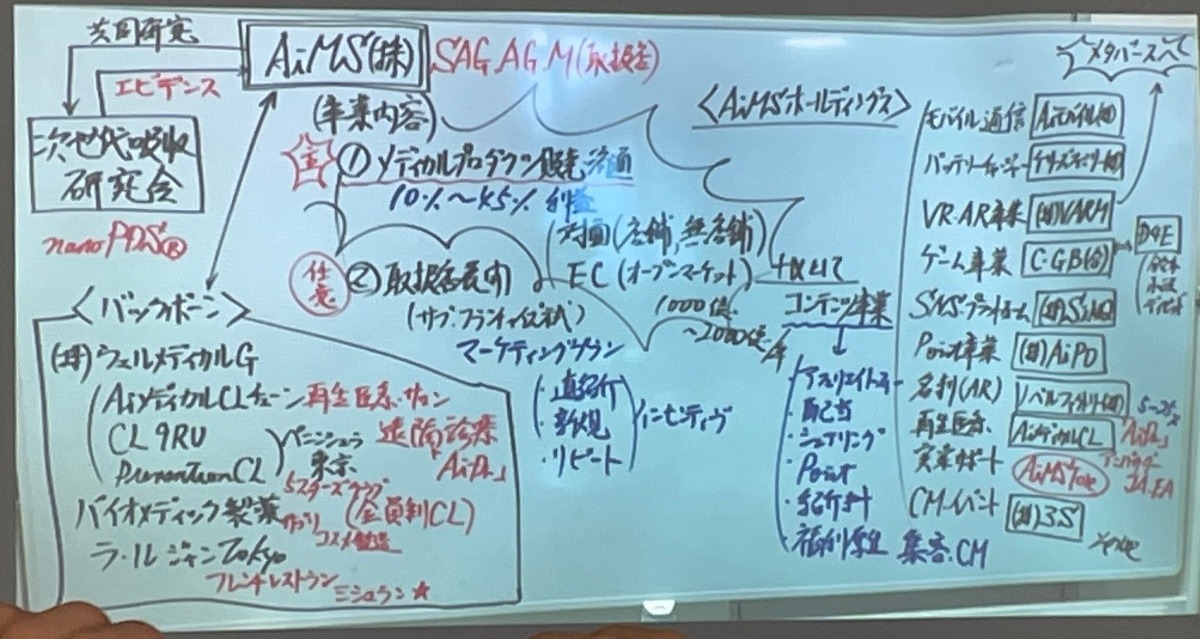 共同研究
エビデンス
次世代吸収
研究会
nanoPDS®
AiMS(株)
SAG, AGM(取扱店)
(事業内容)
① メディカルプロダクツ販売 流通
10%〜45% 利益
対面(店舗, 無店舗)
EC (オープンマーケット)
1000億
〜2000億/年
任意
② 取扱店案内
マーケティングプラン
・直紹介
・新規
・リピート
インセンティヴ
〈バックボーン〉
(株)ウェルメディカルG
AiメディカルCLチェーン 再生医系・サロン
CL 9RU
PreventionCL
ペニンシュラ
東京
遠隔診療
「AiDr.」
5スターズクラブ
(会員制CL)
バイオメディック製薬
サプリ
コスメ製造
ラ・ルジャンTokyo
フレンチレストラン
ミシュラン★
〈AiMSホールディングス〉
コンテンツ事業
・アフィリエイト
・配当
・シェアリング
・Point
・紹介料
・福利厚生
集客・CM
メタバースへ
モバイル通信 Aiモバイル(株)
バッテリーチャージ
VR・AR事業 (株)VARM
ゲーム事業 C・GB(合)
SNS・プラットホーム
Point事業 (株)AiPO
名刺(AR)
再生医系 AiメディカルCL
「AiDr.」
実業サポート
CM・イベント (株)3S